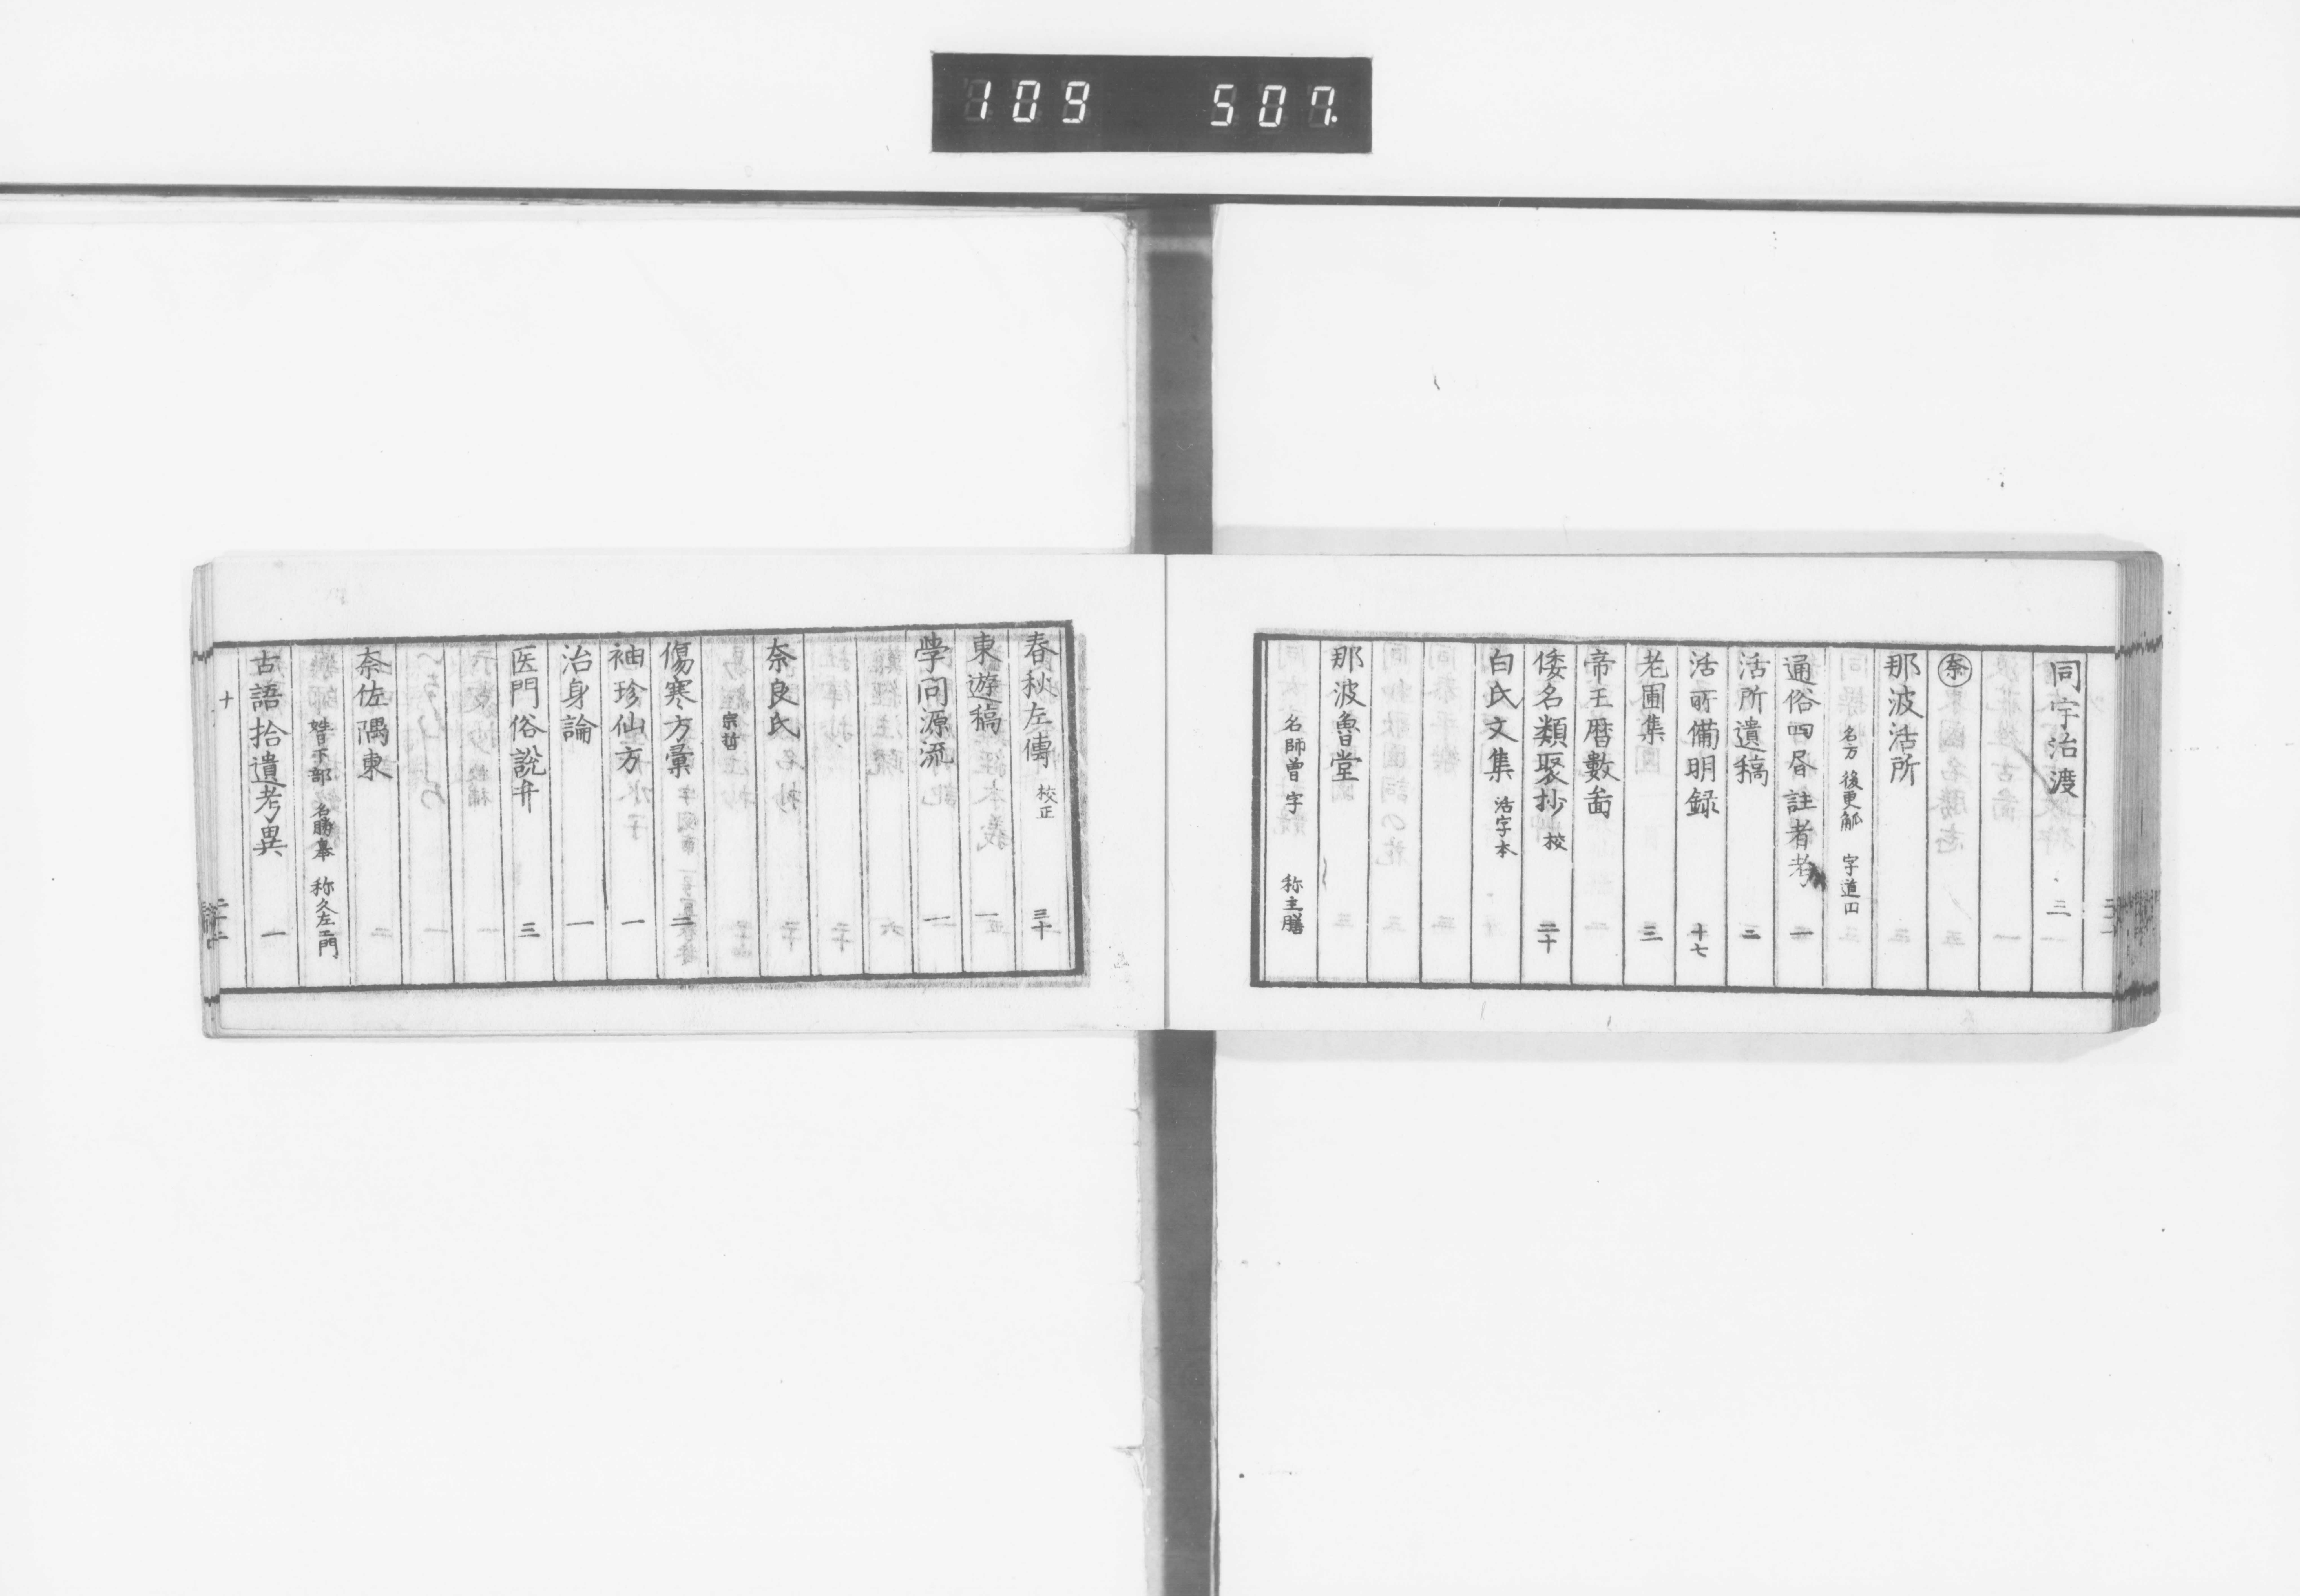 109 507.
同宇治渡 三
奈
那波活所
名方 後更觚 字道円
通俗四昏註者考 一
活所遺稿 二
活所備明録 十七
老圃集 三
帝王暦數啚
倭名類聚抄 校 二十
白氏文集 活字本
那波魯堂
名師曽 字 称主膳
春秋左傳 校正 三十
東遊稿 一
学問源流 一
奈良氏
宗哲
傷寒方彙 二
袖珍仙方 一
治身論 一
医門俗説弁 三
奈佐隅東
姓日下部 名勝皋 称久左エ門
古語拾遺考異 一
十